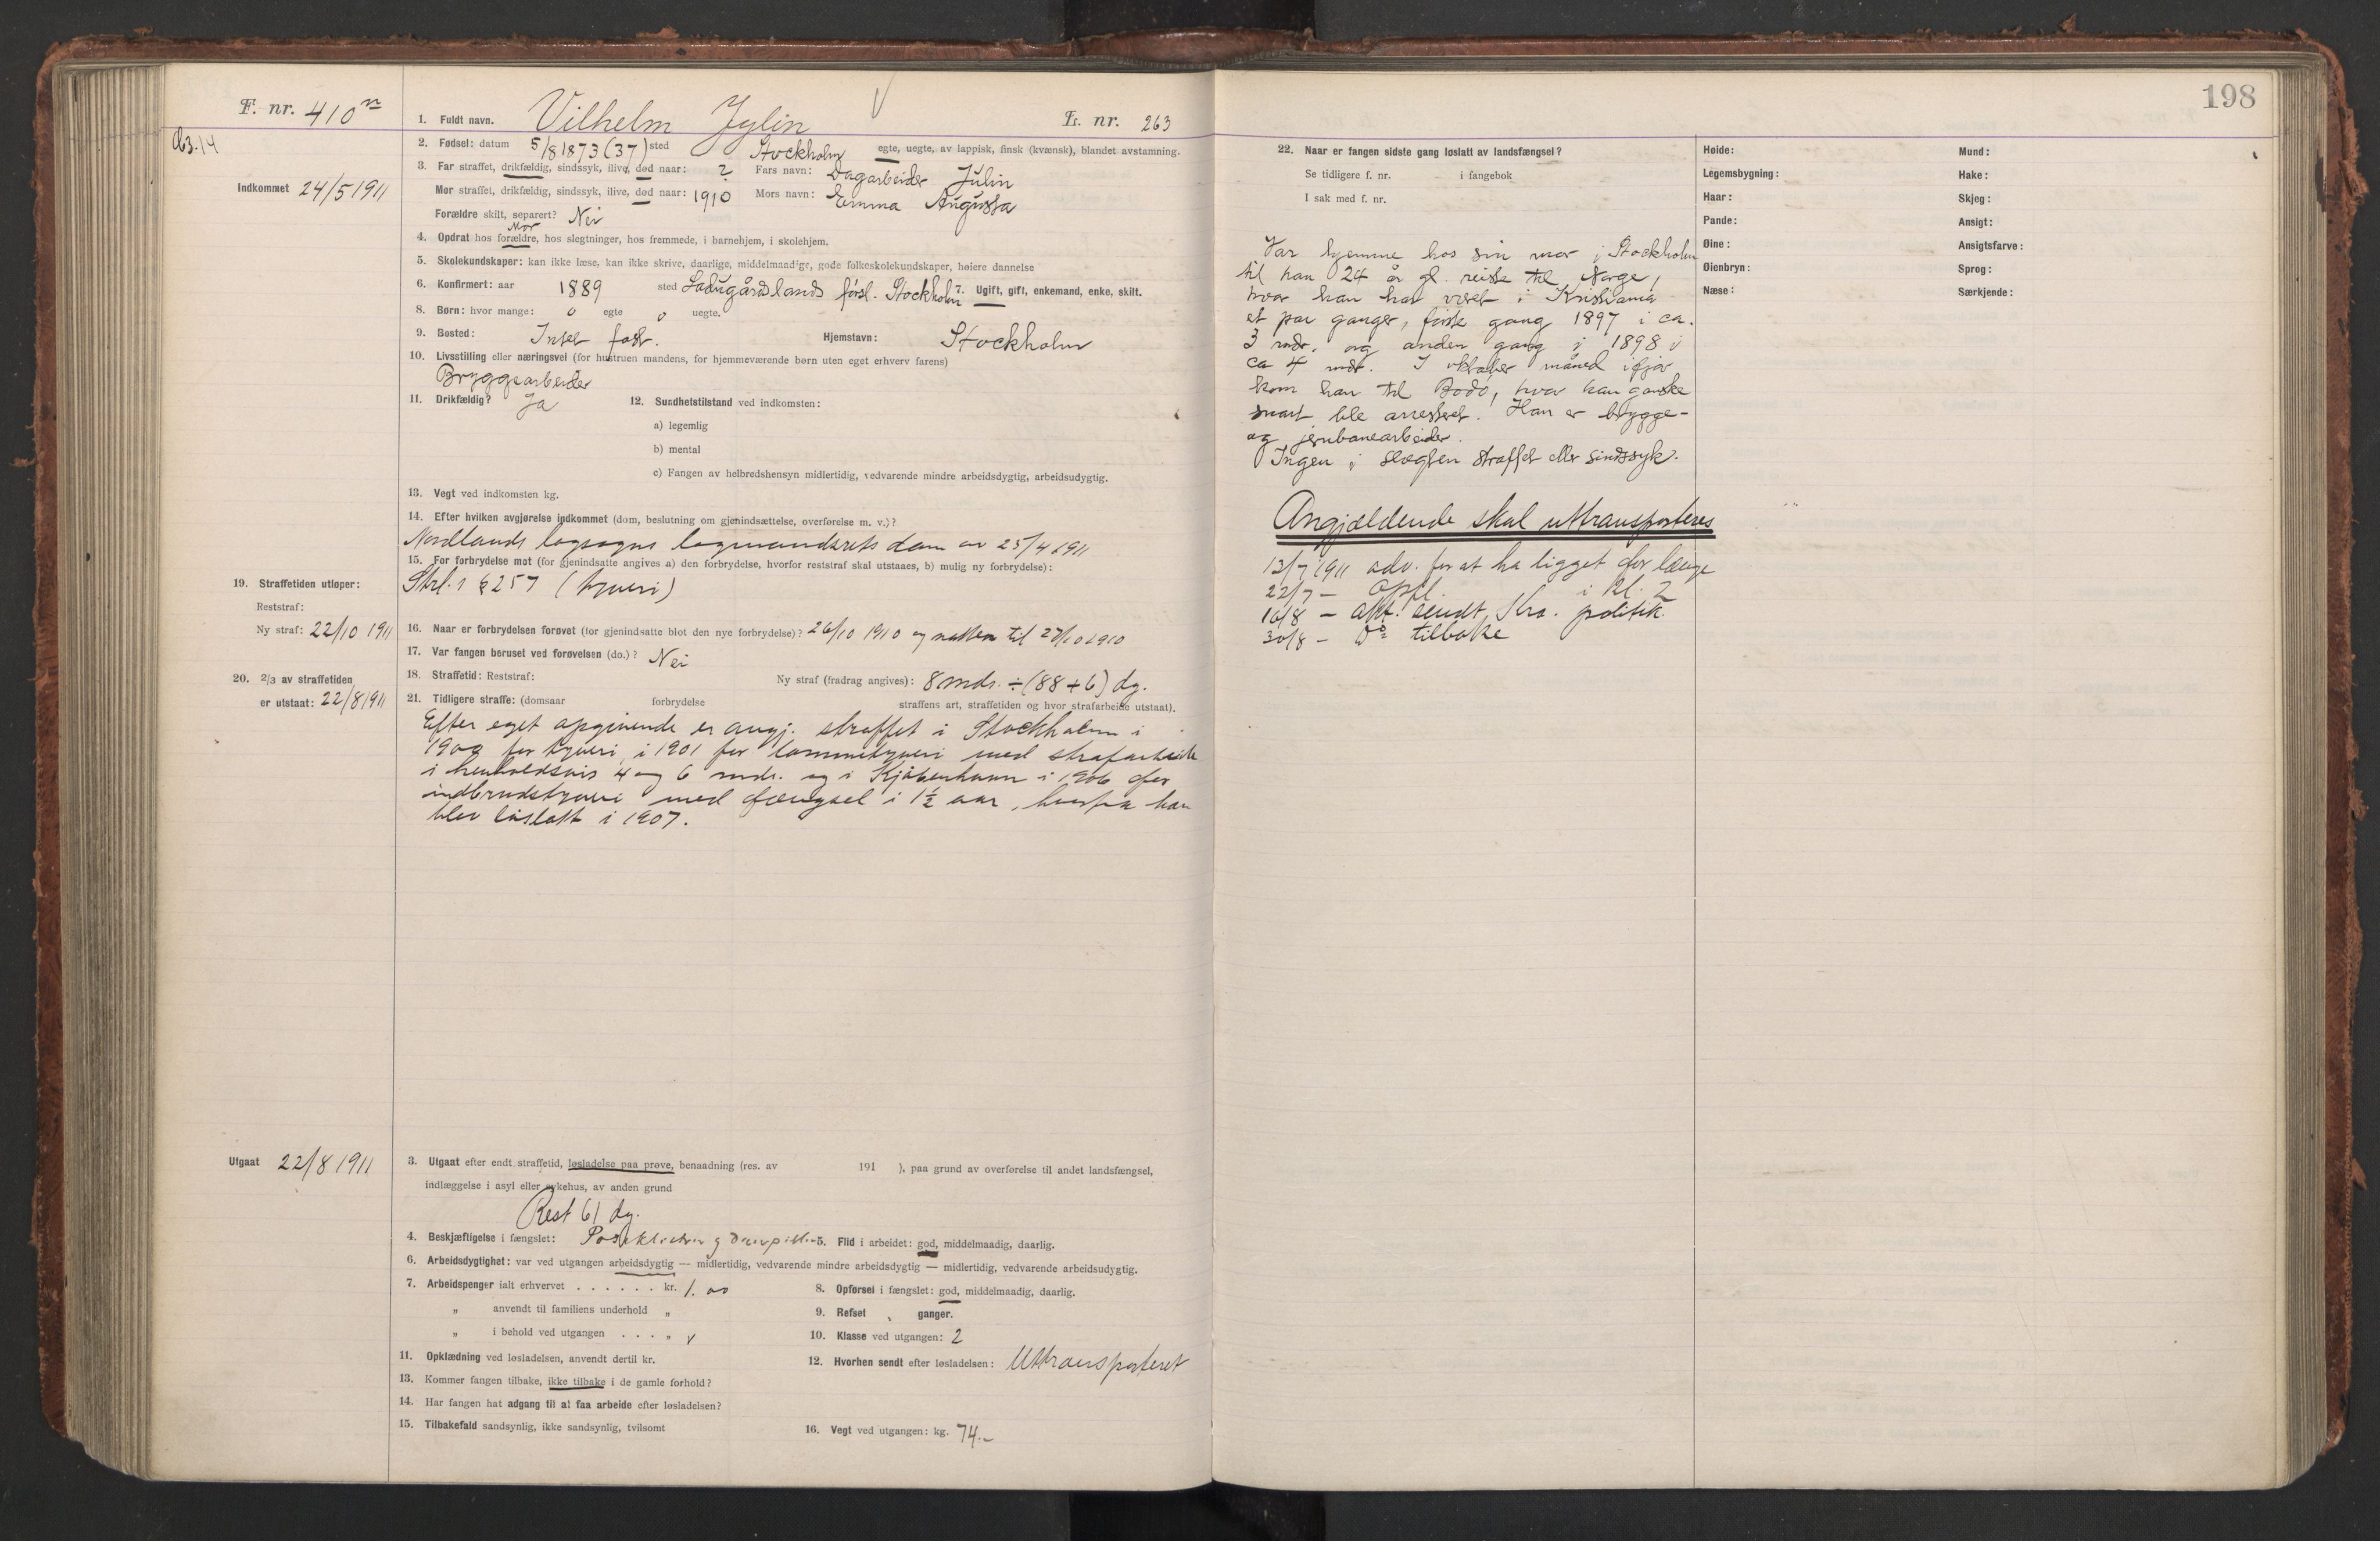 198
F. nr. 410
1. Fuldt navn. Vilhelm Jylin
L. nr. 263
2. Fødsel: datum 5/8 1873 (37) sted Stockholm egte, uegte, av lappisk, finsk (kvænsk), blandet avstamning.
Indkommet 24/5 1911
3. Far straffet, drikfældig, sindssyk, ilive, død naar: ? Fars navn: Dagarbeider Julin
Mor straffet, drikfældig, sindssyk, ilive, død naar: 1910 Mors navn: Emma Augusta
Forældre skilt, separert? Nei
Mor
4. Opdrat hos forældre, hos slegtninger, hos fremmede, i barnehjem, i skolehjem.
5. Skolekundskaper: kan ikke læse, kan ikke skrive, daarlige, middelmaadige, gode folkeskolekundskaper, høiere dannelse
6. Konfirmert: aar 1889 sted Ladugårdslands förs. Stockholm 7. Ugift, gift, enkemand, enke, skilt.
8. Børn: hvor mange: 0 egte 0 uegte.
9. Bosted: Intet fast. Hjemstavn: Stockholm
10. Livsstilling eller næringsvei (for hustruen mandens, for hjemmeværende børn uten eget erhverv farens)
Bryggearbeider
11. Drikfældig? Ja 12. Sundhetstilstand ved indkomsten:
a) legemlig
b) mental
c) Fangen av helbredshensyn midlertidig, vedvarende mindre arbeidsdygtig, arbeidsudygtig.
13. Vegt ved indkomsten kg.
14. Efter hvilken avgjørelse indkommet (dom, beslutning om gjenindsættelse, overførelse m. v.)?
Nordlands lagsogns lagmandsrets dom av 25/4 1911
15. For forbrydelse mot (for gjenindsatte angives a) den forbrydelse, hvorfor reststraf skal utstaaes, b) mulig ny forbrydelse):
Strl. § 257 (tyveri)
19. Straffetiden utløper:
Reststraf:
Ny straf: 22/10 1911
16. Naar er forbrydelsen forøvet (for gjenindsatte blot den nye forbrydelse)? 26/10 1910 og natten til 27/10 1910
17. Var fangen beruset ved forøvelsen (do.)? Nei
18. Straffetid: Reststraf: Ny straf (fradrag angives): 8 mdr. ÷ (88 + 6) dg.
20. 2/3 av straffetiden
er utstaat: 22/8 1911
21. Tidligere straffe: (domsaar forbrydelse straffens art, straffetiden og hvor strafarbeide utstaat).
Efter eget opgivende er angj. straffet i Stockholm i
1900 for tyveri, i 1901 for lommetyveri med strafarbeide
i henholdsvis 4 og 6 mdr. og i Kjøbenhavn i 1906 for
indbrudstyveri med fængsel i 1½ aar, hvorfra han
blev løslatt i 1907.
Utgaat 22/8 1911
3. Utgaat efter endt straffetid, løsladelse paa prøve, benaadning (res. av 191 ), paa grund av overførelse til andet landsfængsel,
indlæggelse i asyl eller sykehus, av anden grund
Rest 61 dg.
4. Beskjæftigelse i fængslet: 5. Flid i arbeidet: god, middelmaadig, daarlig.
6. Arbeidsdygtighet: var ved utgangen arbeidsdygtig — midlertidig, vedvarende mindre arbeidsdygtig — midlertidig, vedvarende arbeidsudygtig.
7. Arbeidspenger ialt erhvervet . . . . . . kr. 1.00 8. Opførsel i fængslet: god, middelmaadig, daarlig.
„ anvendt til familiens underhold „ 9. Refset ganger.
„ i behold ved utgangen . . . „ 10. Klasse ved utgangen: 2
11. Opklædning ved løsladelsen, anvendt dertil kr. 12. Hvorhen sendt efter løsladelsen: Uttransporteret
13. Kommer fangen tilbake, ikke tilbake i de gamle forhold?
14. Har fangen hat adgang til at faa arbeide efter løsladelsen?
15. Tilbakefald sandsynlig, ikke sandsynlig, tvilsomt 16. Vegt ved utgangen: kg. 74.-
22. Naar er fangen sidste gang løslatt av landsfængsel?
Se tidligere f. nr. i fangebok
I sak med f. nr.
Var hjemme hos sin mor i Stockholm
til han 24 år gl. reiste til Norge,
hvor han har været i Kristiania
et par ganger, første gang 1897 i ca.
3 mdr. og anden gang i 1898 i
ca 4 mdr. I oktober måned ifjor
kom han til Bodö, hvor han ganske
snart ble arrestert. Han er brygge-
og jernbanearbeider.
Ingen i slegten straffet eller sindssyk.
Angjældende skal uttransporteres
13/7 1911 adv. for at ha ligget for længe
22/7 – opfl. i kl. 2
16/8 – akt. sendt Kra. politik.
30/8 – do tilbake
Høide:
Legemsbygning:
Haar:
Pande:
Øine:
Øienbryn:
Næse:
Mund:
Hake:
Skjeg:
Ansigt:
Ansigtsfarve:
Sprog:
Særkjende: